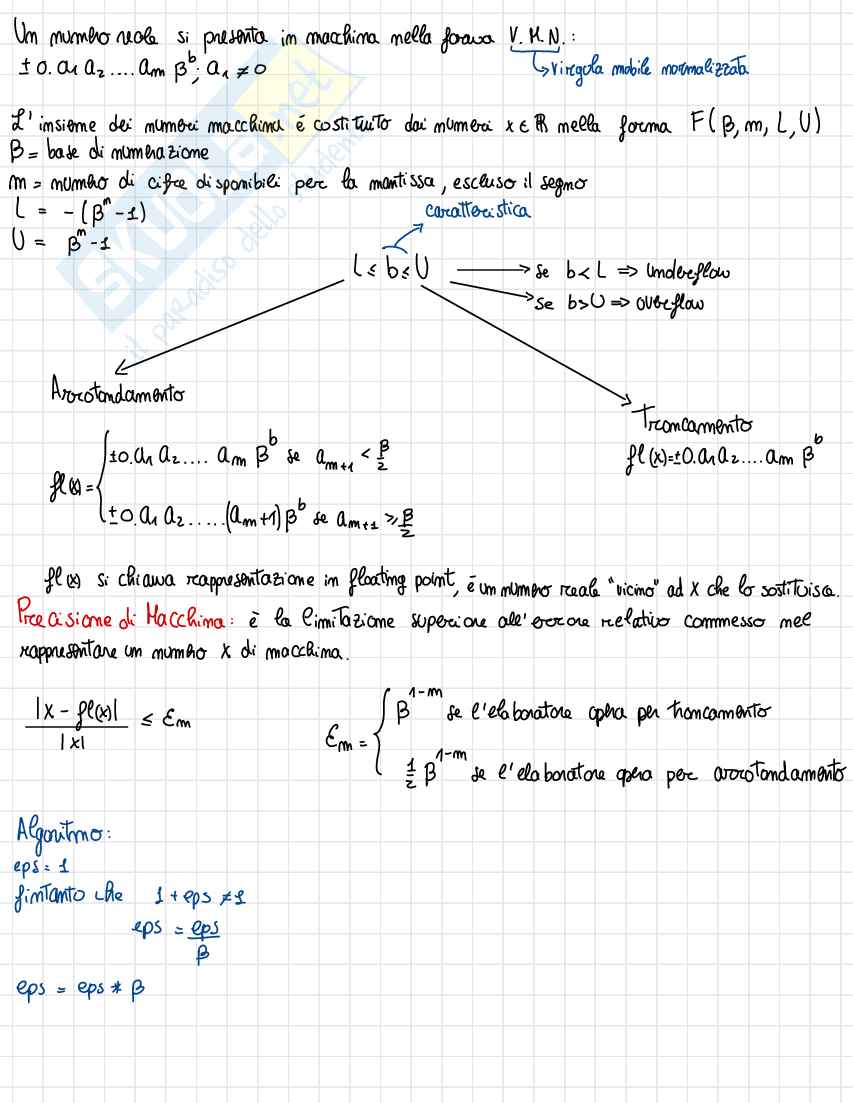 Un numero reale si presenta in macchina nella forma V.M.N.:
± 0. a₁ a₂ .... aₘ βᵇ; a₁ ≠ 0
↳ virgola mobile normalizzata
L'insieme dei numeri macchina é costituito dai numeri x ∈ ℝ nella forma F(β, m, L, U)
β = base di numerazione
m = numero di cifre disponibili per la mantissa, escluso il segno
L = -(βᵐ-1)
U = βᵐ-1
caratteristica
L ≤ b ≤ U
se b < L ⇒ underflow
se b > U ⇒ overflow
Arrotondamento
Troncamento
fl(x) = ±0. a₁ a₂ .... aₘ βᵇ
fl(x) = { ±0. a₁ a₂ .... aₘ βᵇ se aₘ₊₁ < β/2
±0. a₁ a₂ ..... (aₘ+1) βᵇ se aₘ₊₁ ≥ β/2
fl(x) si chiama rappresentazione in floating point, é un numero reale "vicino" ad x che lo sostituisce.
Precisione di Macchina: è la limitazione superiore all'errore relativo commesso nel
rappresentare un numero x di macchina.
|x - fl(x)| / |x| ≤ εₘ
εₘ = { β¹⁻ᵐ se l'elaboratore opera per troncamento
1/2 β¹⁻ᵐ se l'elaboratore opera per arrotondamento
Algoritmo:
eps = 1
fintanto che 1 + eps ≠ 1
eps = eps/β
eps = eps * β
SKUOLA.net
il paradiso dello studente